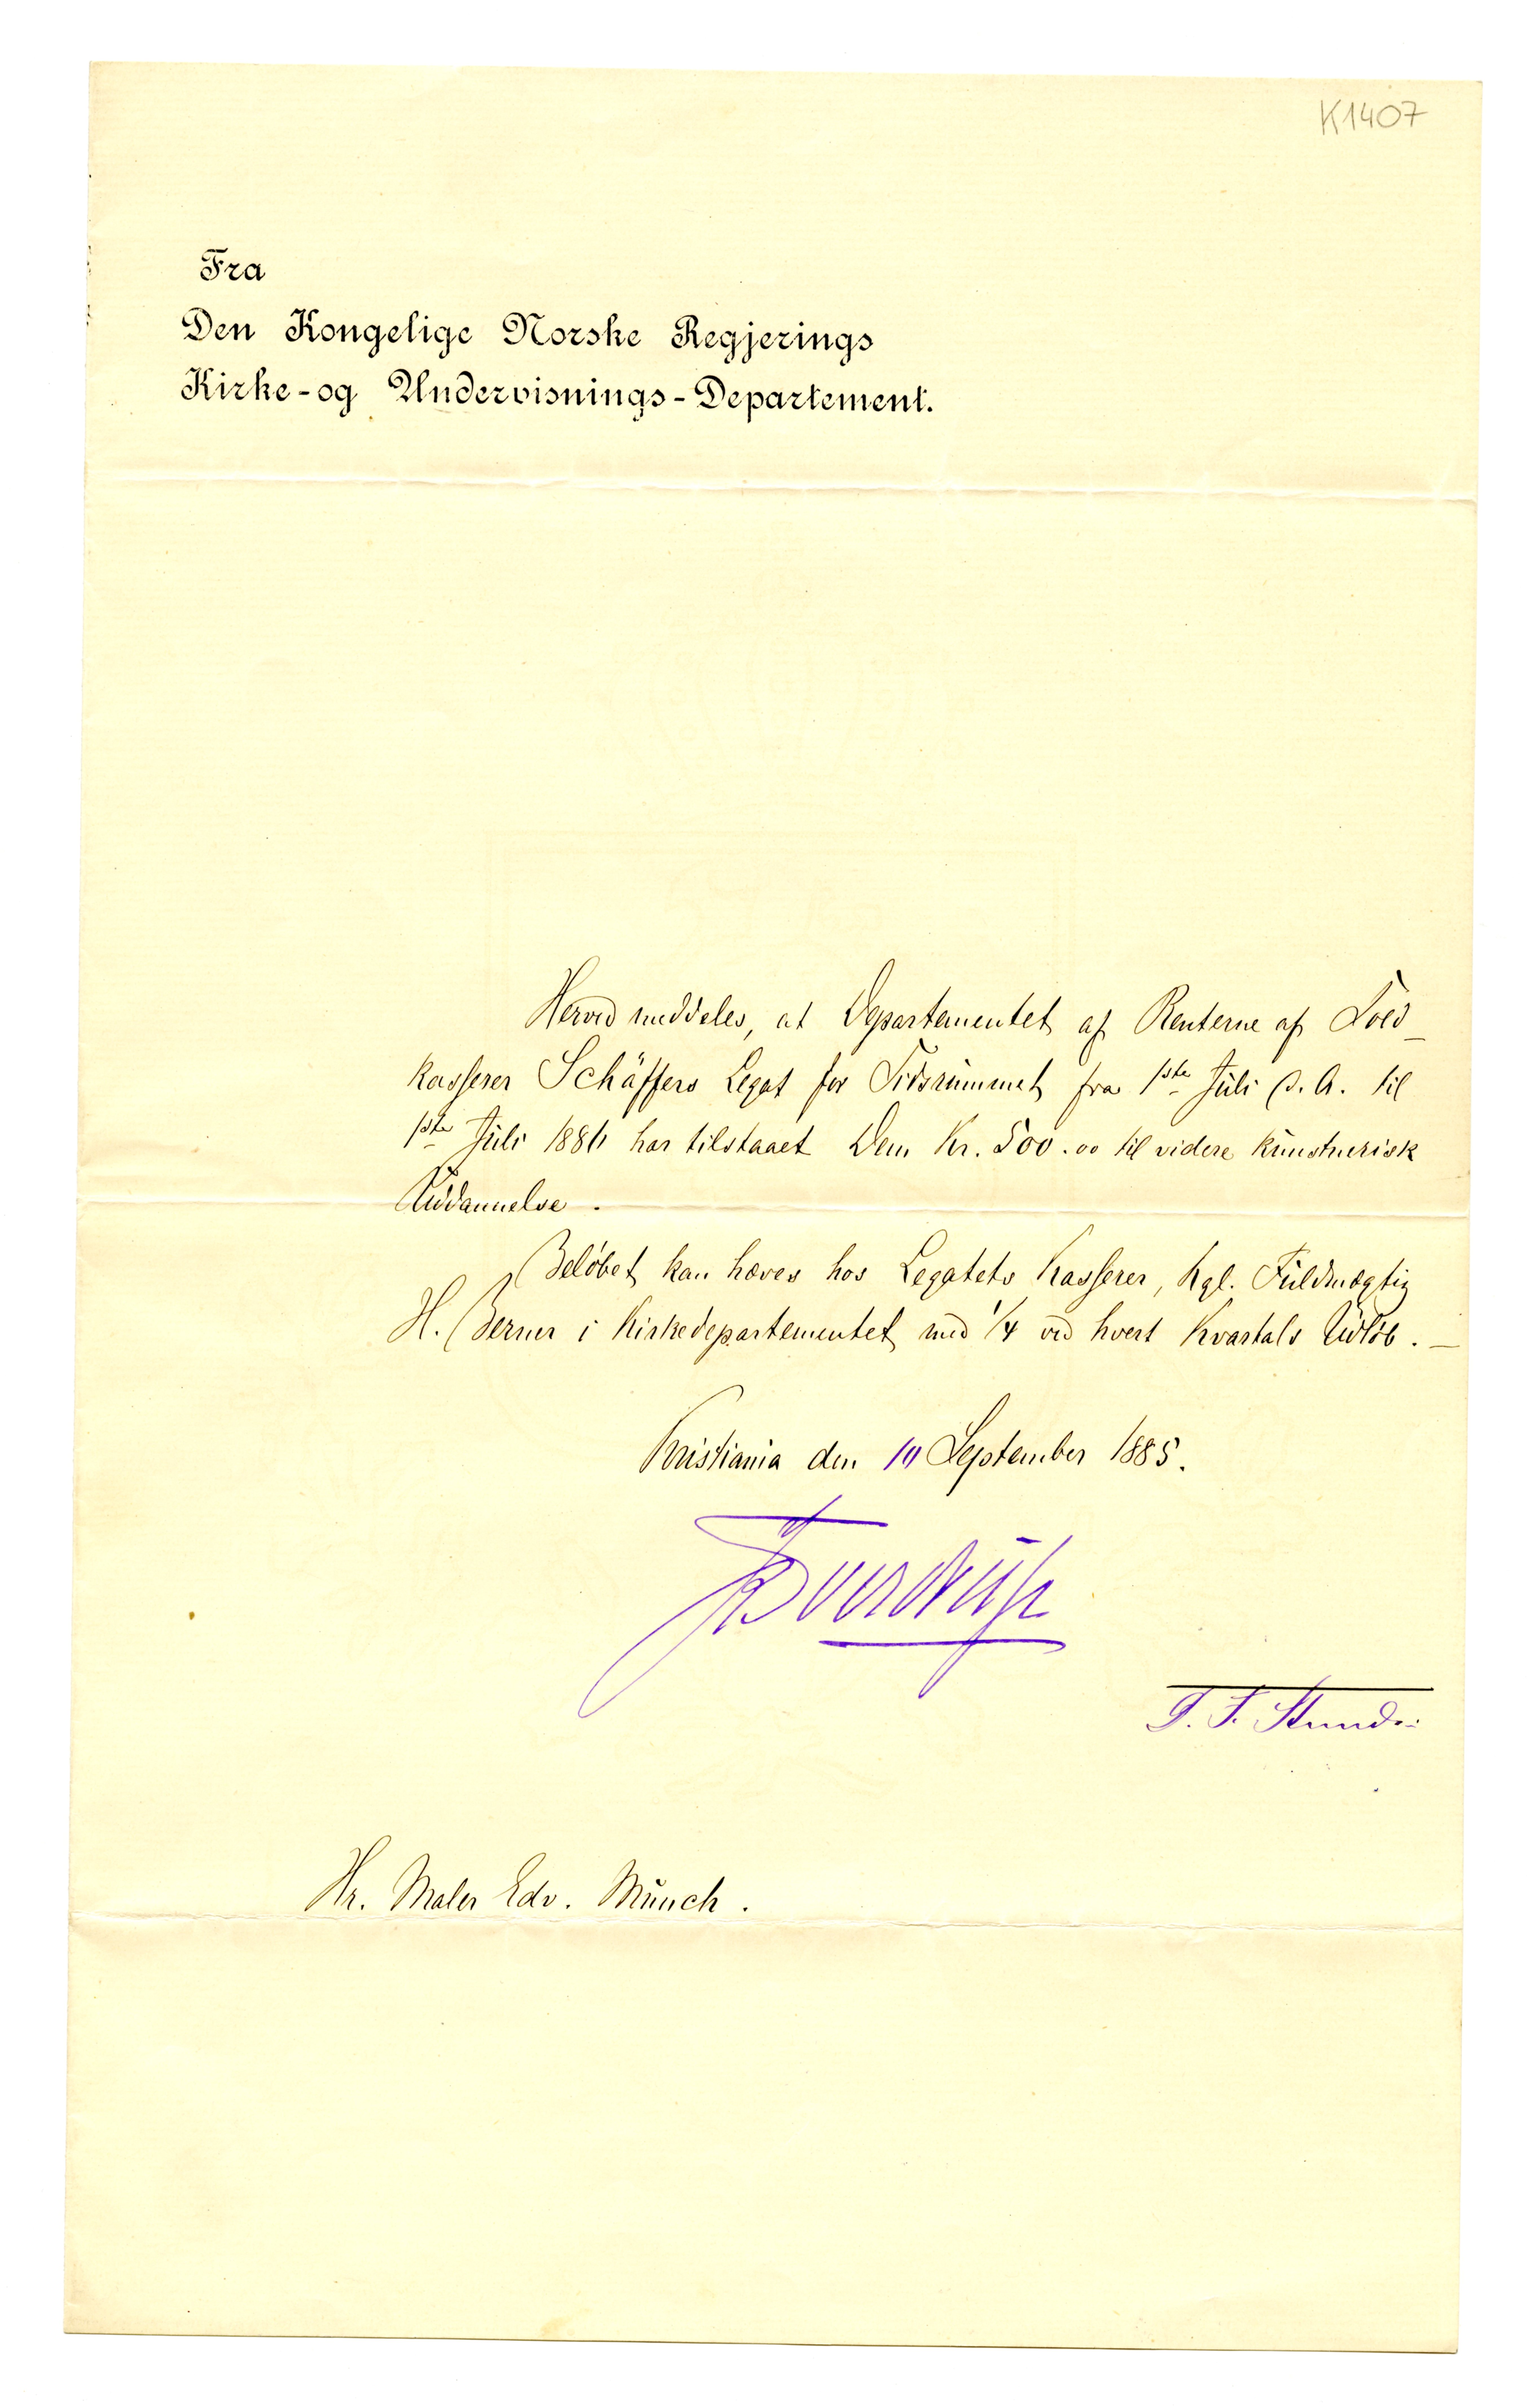 K1407
Fra
Den Kongelige Norske Regjerings
Kirke-og Undervisnings-Departement.
Herved meddeles, at Departementet af Renterne af Told-
kasserer Schäffers Legat for Tidsrummet fra 1ste Juli d. A. til
1ste Juli 1886 har tilstaaet Dem Kr. 500.00 til videre kunstnerisk
Uddannelse.
Beløbet kan hæves hos Legatets Kasserer, kgl. Fuldmægtig
H. Berner i Kirkedepartementet med 1/4 ved hvert Kvartals Udløb. –
Kristiania den 10 September 1885.
JSverdrup
Hr. Maler Edv. Munch.